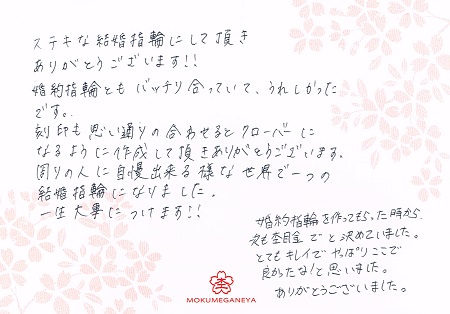 ステキな結婚指輪にして頂き
ありがとうございます!!
婚約指輪とも バッチリ合っていて、うれしかった
です。
刻印も思い通りの合わせるとクローバーに
なるように作成して頂きありがとうございます。
周りの人に自慢出来る様な世界で一つの
結婚指輪になりました。
一生大事につけます!!
婚約指輪を作ってもらった時から、
次も杢目金でと決めていました。
とてもキレイでやっぱりここで
良かったな!と思いました。
ありがとうございました。
MOKUMEGANEYA